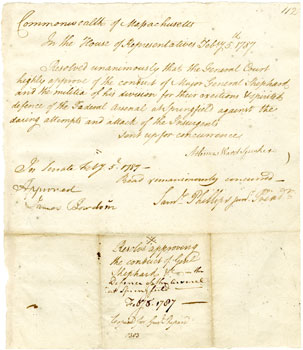 Commonwealth of Massachusetts
In the House of Representatives Feb.y 5th 1787
Resolved unanimously that the General Court
highly approve of the conduct of Major General Shephard
and the militia of his division for their zealous & spirited
defence of the Federal Arsenal at Springfield against the
daring attempts and attack of the Insurgents
Send up for concurrence
Speaker
In Senate Feby 5th 1787
Read unanimously concurred
Saml Phillips jun. Presdt
Approved
James Bowdoin
Resolve approving
the conduct of Genl
Shephard &c in the
Defence of the Arsenal
at Springfield
Feby 5. 1787